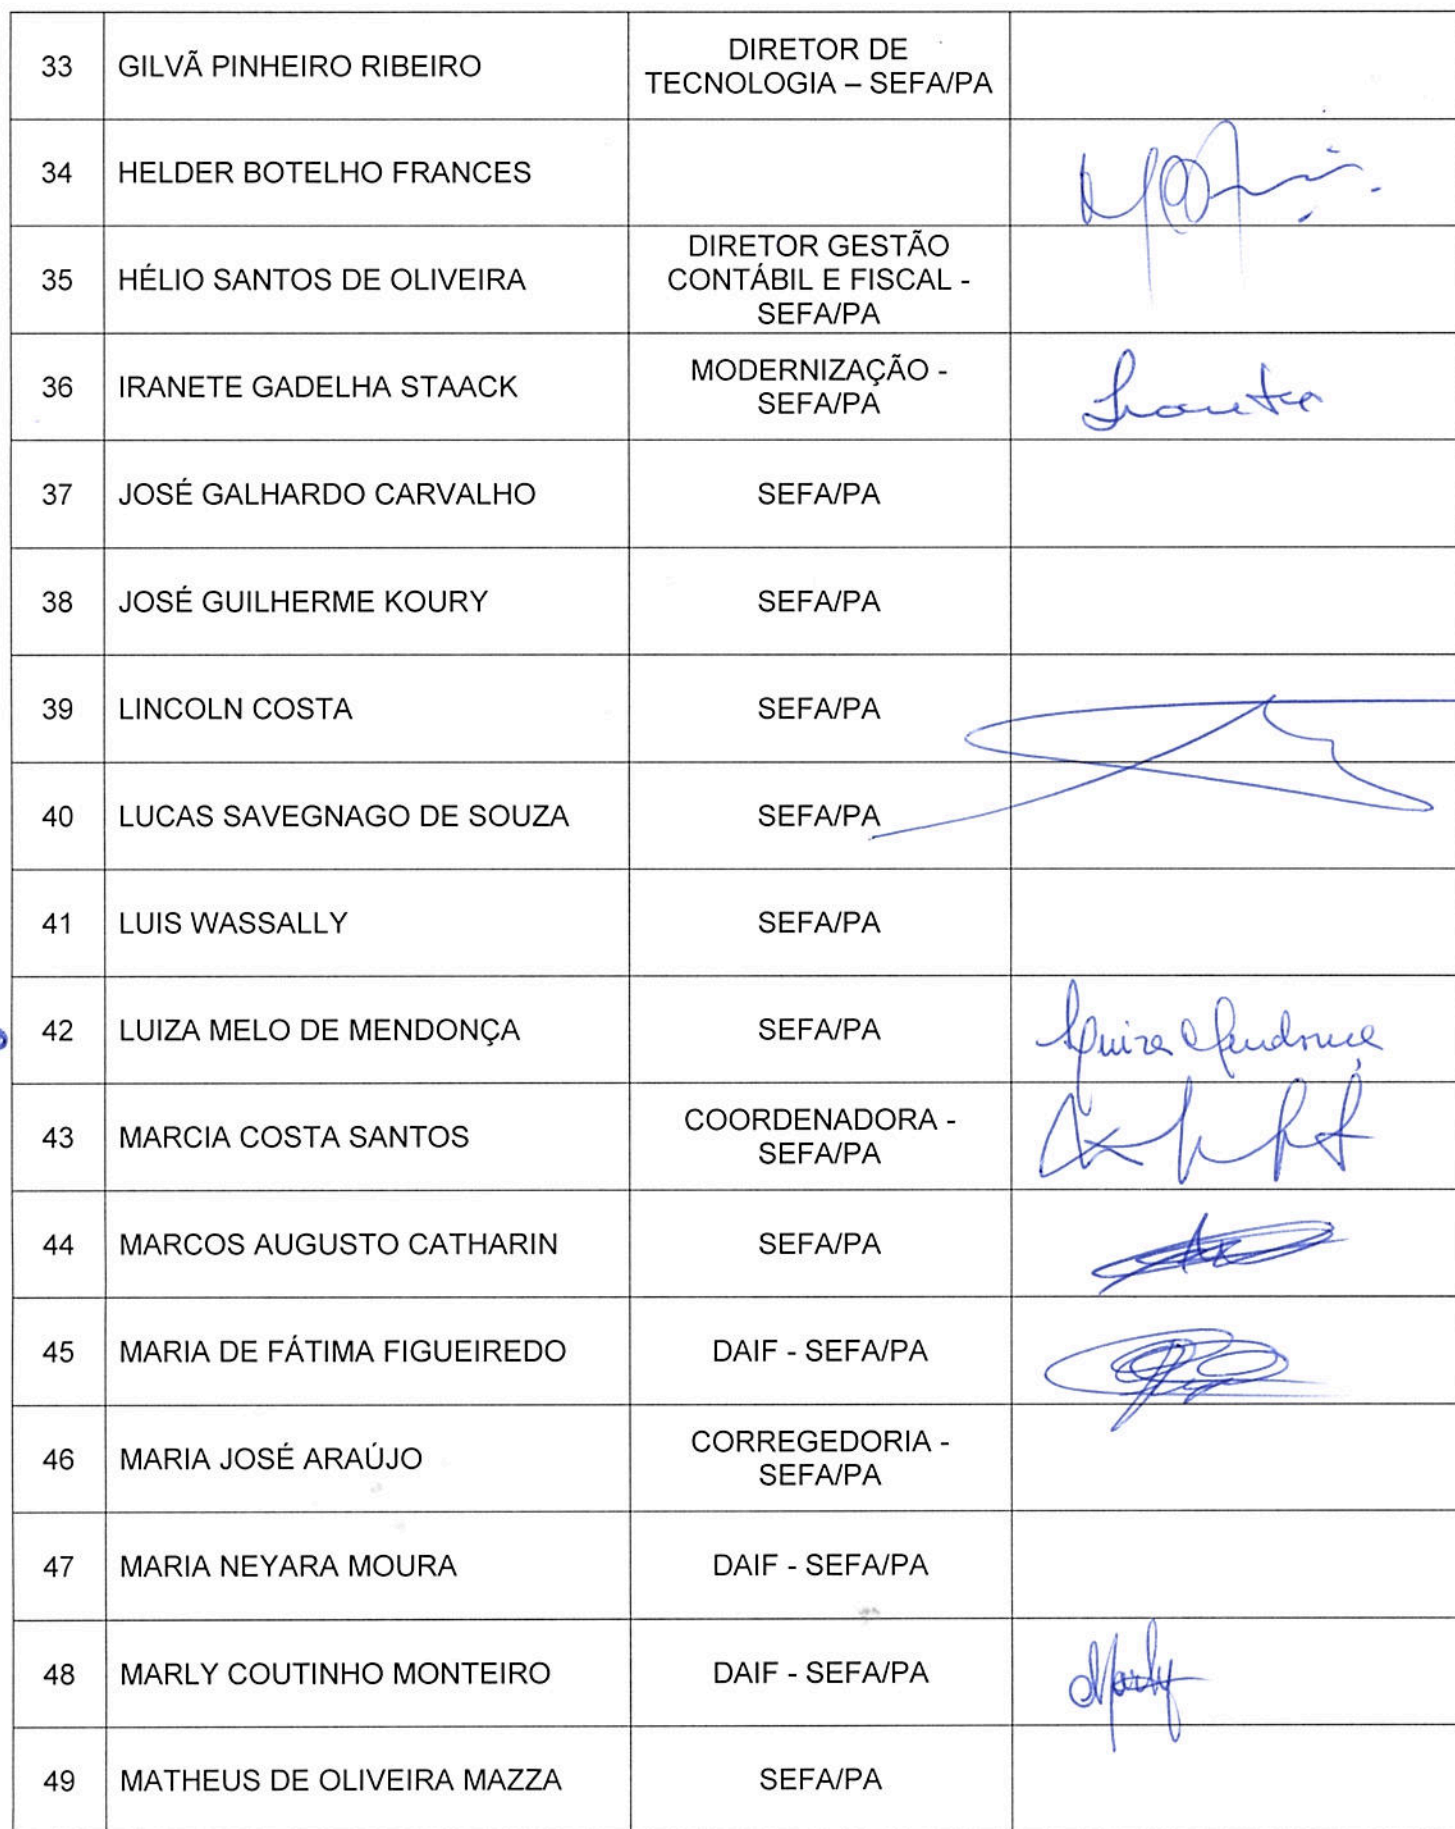 33 GILVÃ PINHEIRO RIBEIRO DIRETOR DE
TECNOLOGIA – SEFA/PA
34 HELDER BOTELHO FRANCES
35 HÉLIO SANTOS DE OLIVEIRA DIRETOR GESTÃO
CONTÁBIL E FISCAL -
SEFA/PA
36 IRANETE GADELHA STAACK MODERNIZAÇÃO -
SEFA/PA
37 JOSÉ GALHARDO CARVALHO SEFA/PA
38 JOSÉ GUILHERME KOURY SEFA/PA
39 LINCOLN COSTA SEFA/PA
40 LUCAS SAVEGNAGO DE SOUZA SEFA/PA
41 LUIS WASSALLY SEFA/PA
42 LUIZA MELO DE MENDONÇA SEFA/PA Luiza Mendonça
43 MARCIA COSTA SANTOS COORDENADORA -
SEFA/PA
44 MARCOS AUGUSTO CATHARIN SEFA/PA
45 MARIA DE FÁTIMA FIGUEIREDO DAIF - SEFA/PA
46 MARIA JOSÉ ARAÚJO CORREGEDORIA -
SEFA/PA
47 MARIA NEYARA MOURA DAIF - SEFA/PA
48 MARLY COUTINHO MONTEIRO DAIF - SEFA/PA Marly
49 MATHEUS DE OLIVEIRA MAZZA SEFA/PA